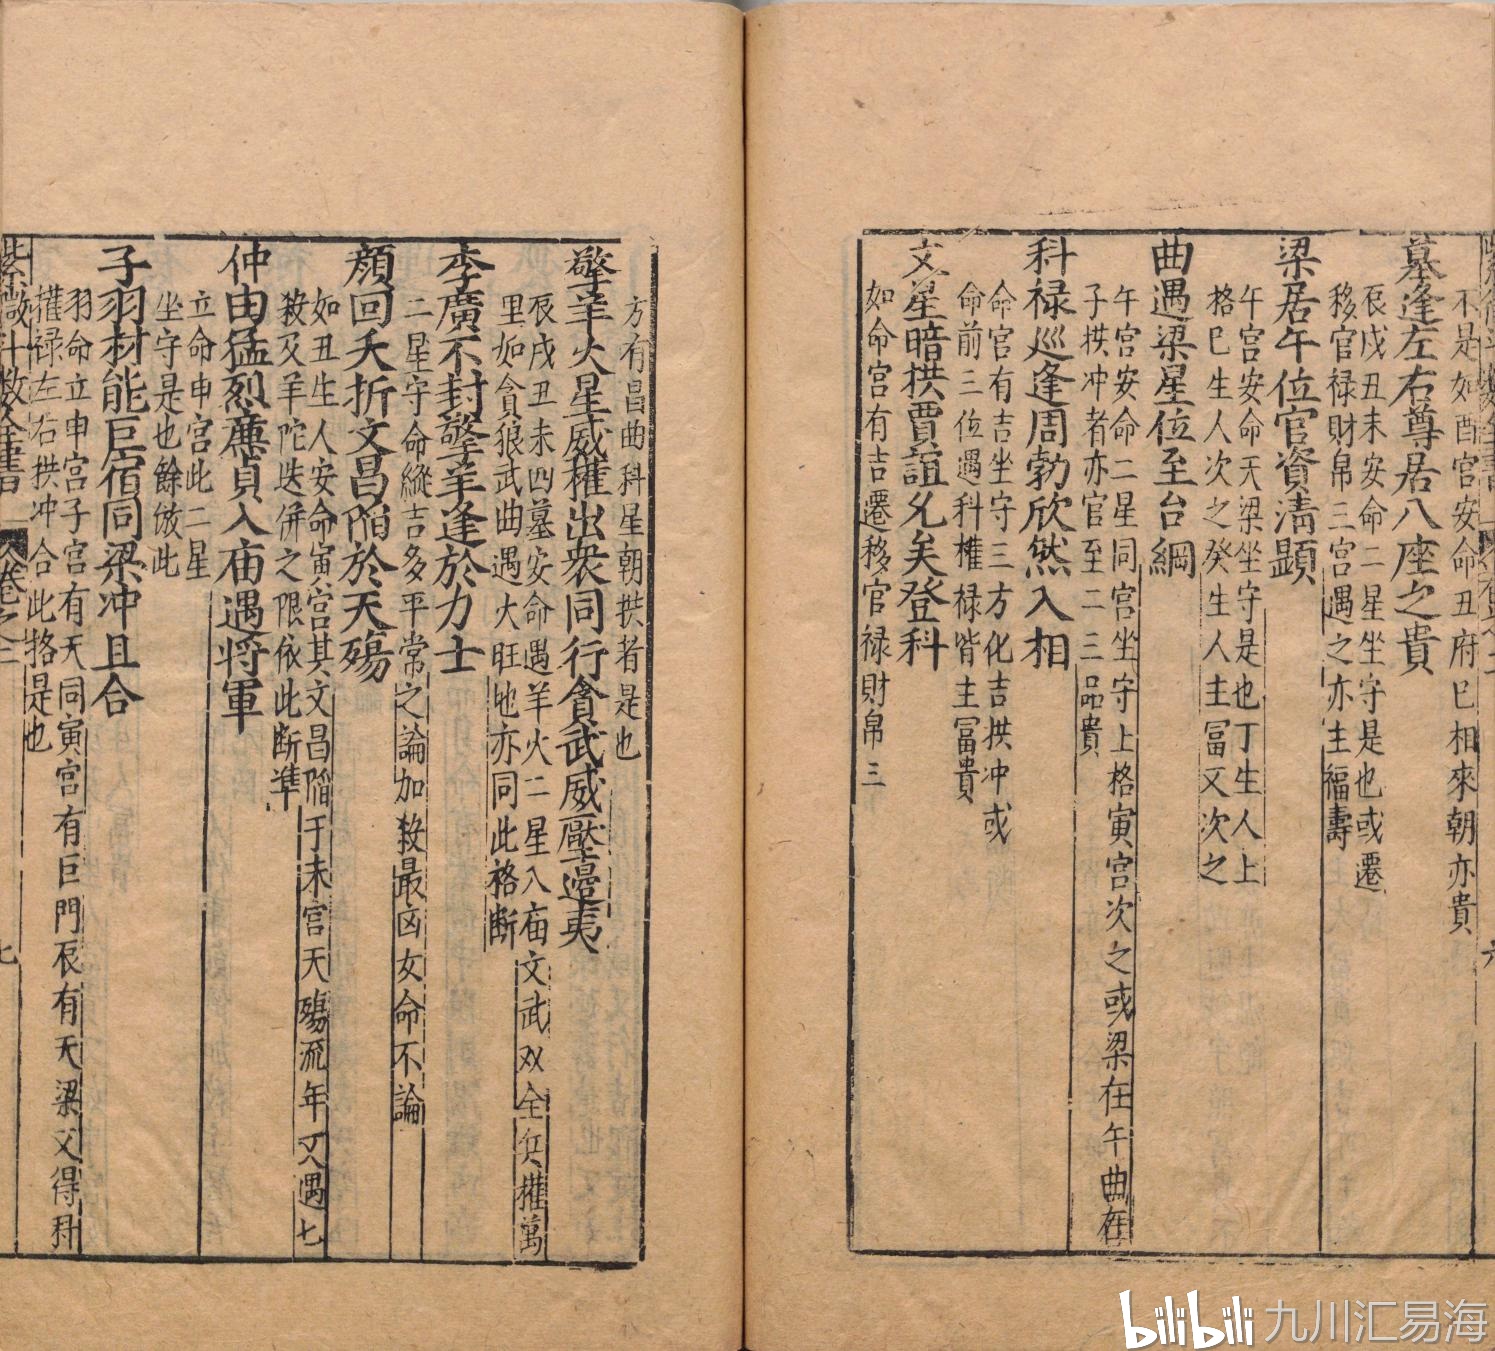 不是如酉宫安命丑府巳相來朝亦貴
墓逢左右尊居八座之貴
辰戌丑未安命二星坐守是也或遷
移官禄財帛三宫遇之亦主福壽
梁居午位官資清顯
午宫安命天梁坐守是也丁生人上
格巳生人次之癸生人主富又次之
曲遇梁星位至台綱
午宫安命二星同宫坐守上格寅宫次之或梁在午曲在
子拱冲者亦官至二三品貴
科禄巡逢周勃欣然入相
命官有吉坐守三方化吉拱冲或
命前三位遇科權禄皆主冨貴
文星暗拱賈誼允矣登科
如命宫有吉遷移官禄財帛三
方有昌曲科星朝拱者是也
擎羊火星威權出衆同行貪武威壓邉夷
辰戌丑未四墓安命遇羊火二星入庙文武双全兵權萬
里如貪狼武曲遇火旺地亦同此格断
李廣不封擎羊逢於力士
二星守命縱吉多平常之論加殺最凶女命不論
顔回夭折文昌陷於天殤
如丑生人安命寅宫其文昌陷于未宫天殤流年又遇七
殺及羊陀迭併之限依此断準
仲由猛烈廉貞入庙遇将軍
立命申宫此二星
坐守是也餘倣此
子羽材能巨宿同梁冲且合
羽命立申宫子宫有天同寅宫有巨門辰有天梁父得科
權禄左右拱冲合此格是也
紫微斗数全書 卷之二 七
bilibili 九川汇易海